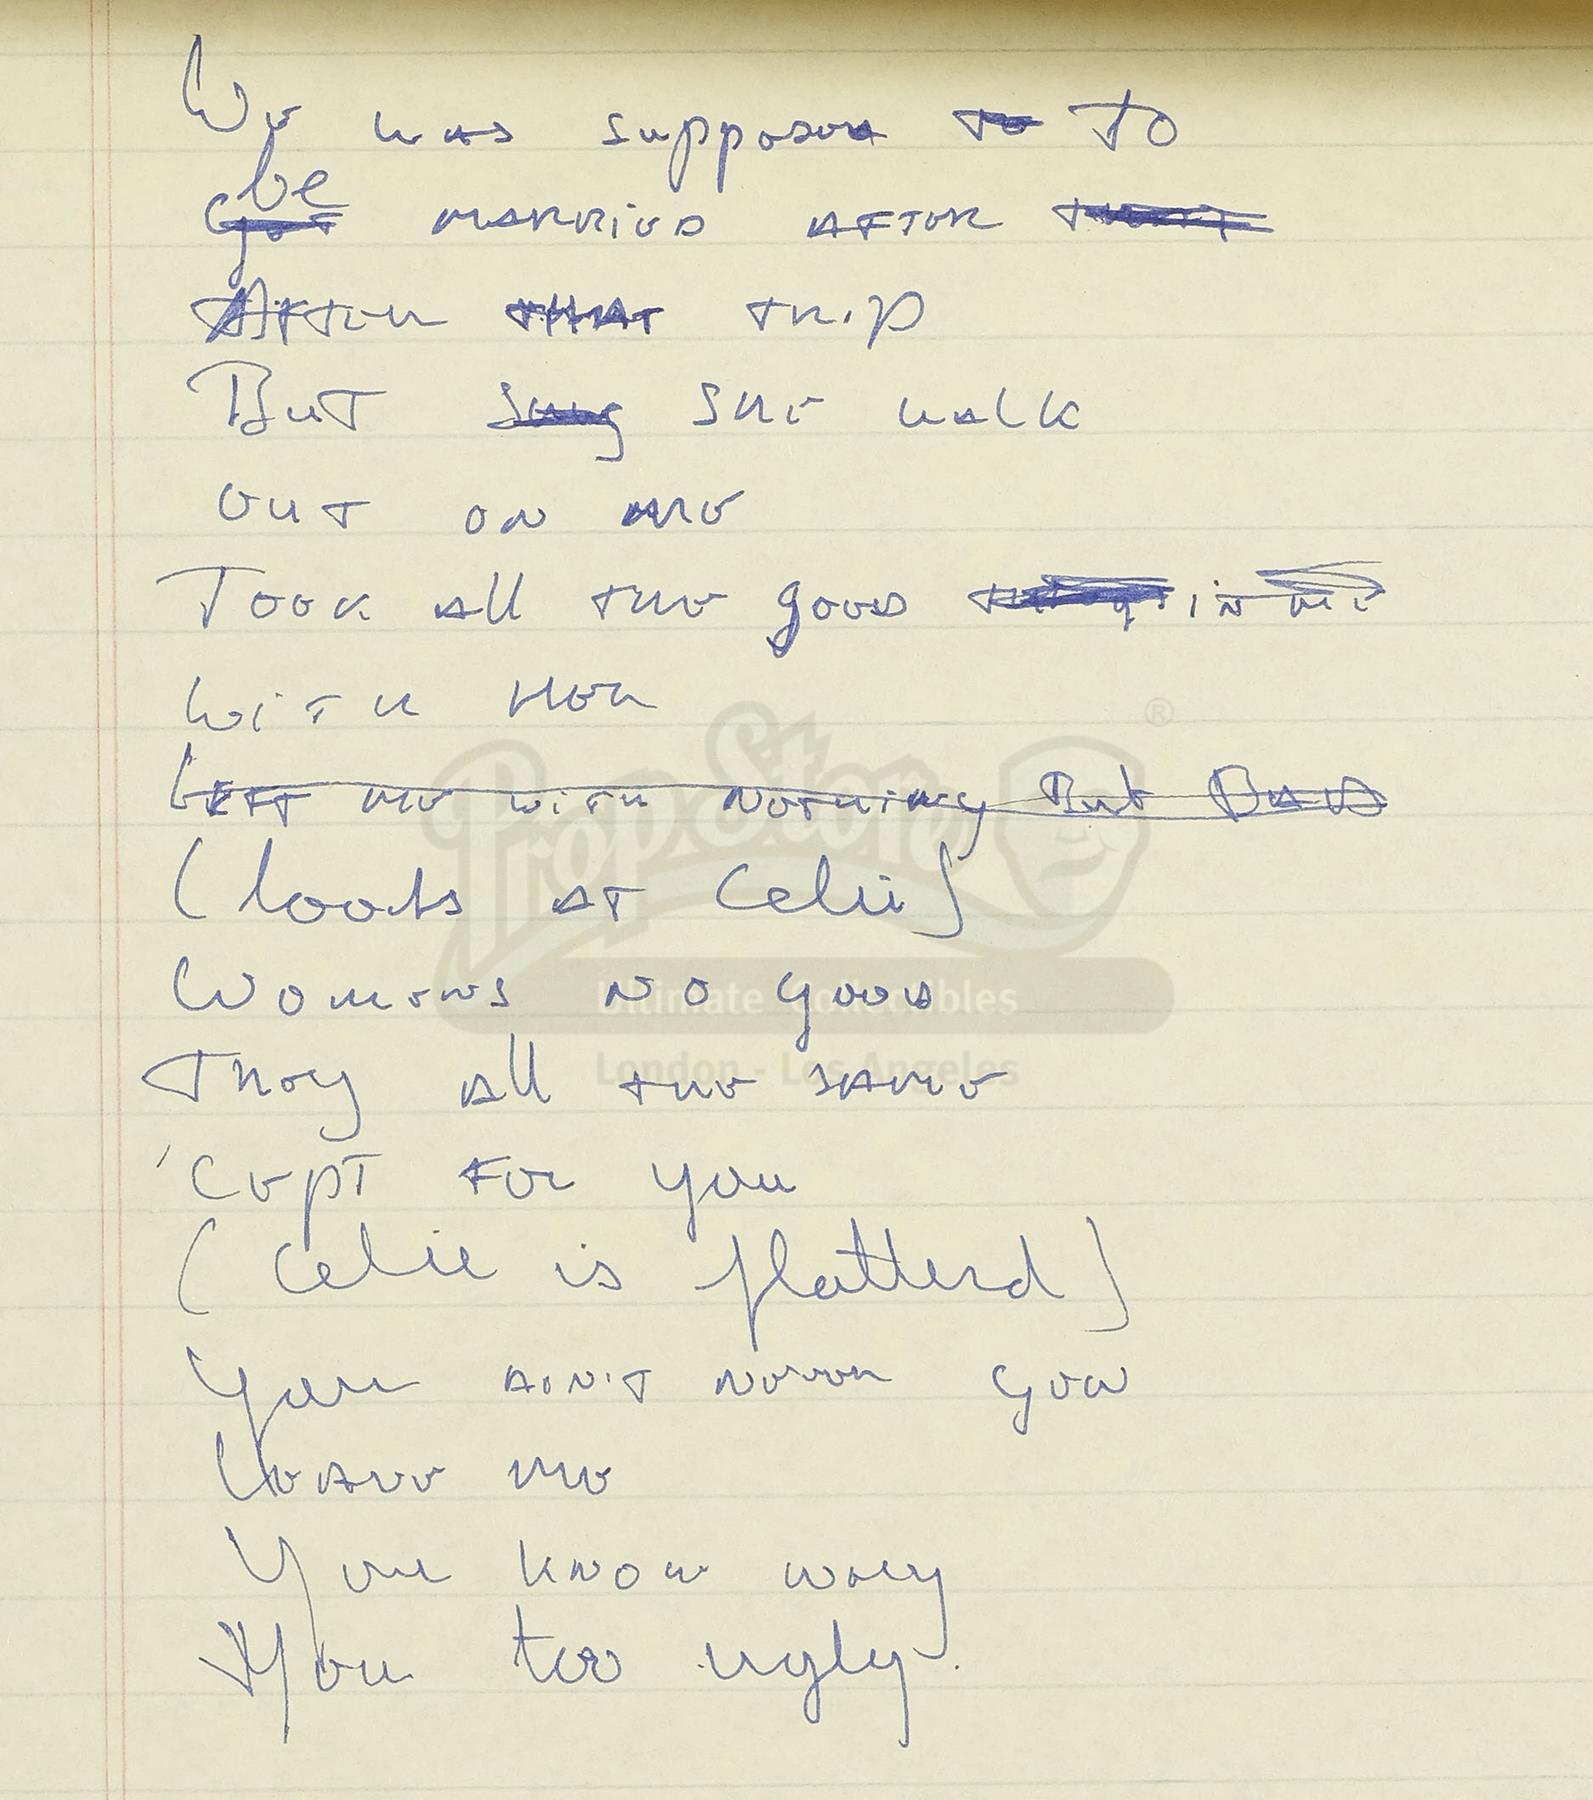 We was supposed to To
be
got MARRIED AFTER
AFTER THAT TRIP
BUT SHE WALK
OUT ON ME
TOOK All THE good in me
WITH HER
LEFT ME WITH NOTHING But BAD
(looks AT Celie)
WOMENS NO good
THEY All THE SAME
'CEPT FOR you
(Celie is flatterd)
You AIN'T NEVER gON
LEAVE ME
You KNOW WHY
You too ugly.
PropStore ®
Ultimate Collectibles
London - Los Angeles